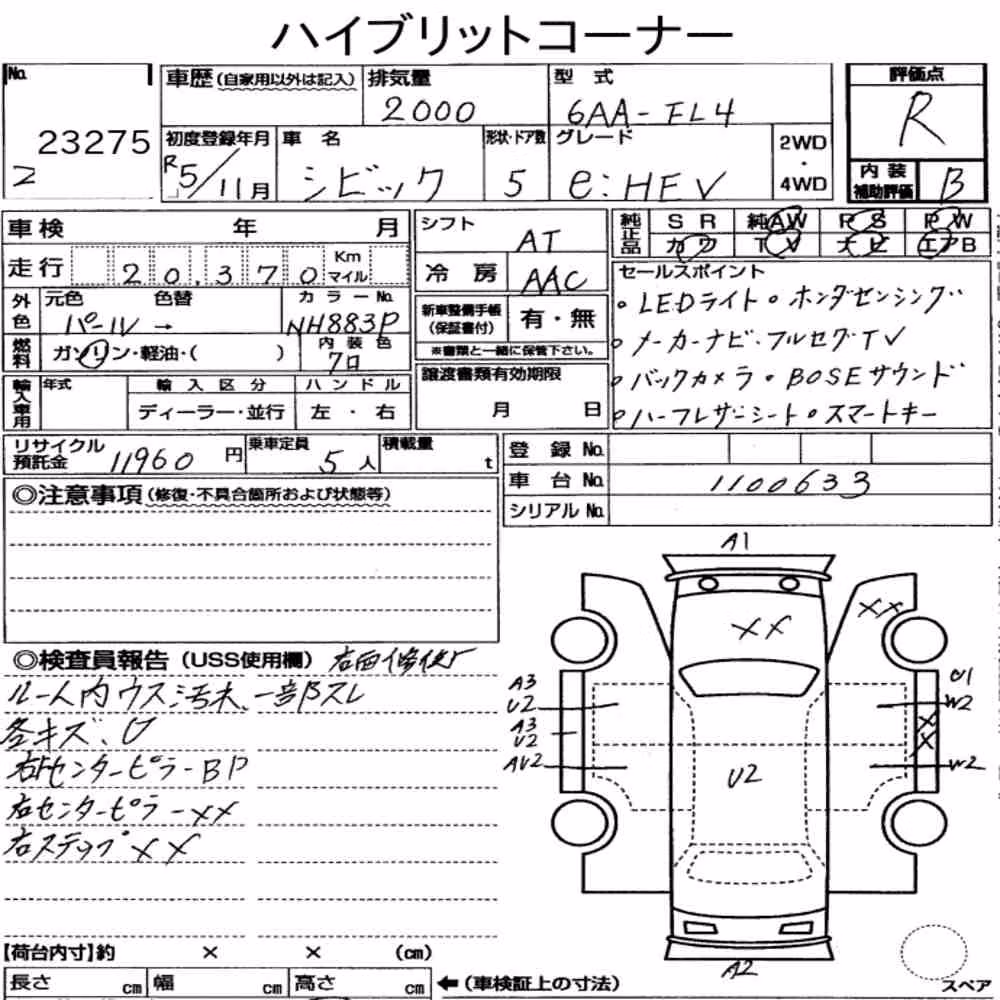 ハイブリットコーナー
No.
23275
2
車歴(自家用以外は記入)
排気量
2000
型式
6AA-FL4
評価点
R
初度登録年月
R5/11月
車名
シビック
形状・ドア数
5
グレード
e:HEV
2WD
・
4WD
内装
補助評価
B
車検 年 月
走行 20,370 Km
マイル
シフト
AT
冷房
AAC
純正品
SR 純AW PS PW
カワ TV ナビ エアB
外色
元色 色替
パール →
カラーNo.
NH883P
燃料
ガソリン・軽油・( )
内装色
クロ
新車整備手帳
(保証書付)
有・無
※書類と一緒に保管下さい。
セールスポイント
・LEDライト・ホンダセンシング
・メーカーナビ・フルセグTV
・バックカメラ・BOSEサウンド
・ハーフレザーシート・スマートキー
輸入車用
年式
輸入区分
ハンドル
ディーラー・並行
左・右
譲渡書類有効期限
月 日
リサイクル
預託金
11960円
乗車定員
5人
積載量
t
登録No.
車台No.
1100633
シリアルNo.
◎注意事項(修復・不具合箇所および状態等)
◎検査員報告(USS使用欄)
ルーム内ウス汚れ、一部スレ
各キズ、U
右センターピラーBP
右センターピラーXX
右ステップXX
A1
XX
XX
A3
U2
A3
U2
AU2
U1
W2
X
X
W2
U2
A2
【荷台内寸】約 × × (cm)
長さ cm 幅 cm 高さ cm
←(車検証上の寸法)
スペア